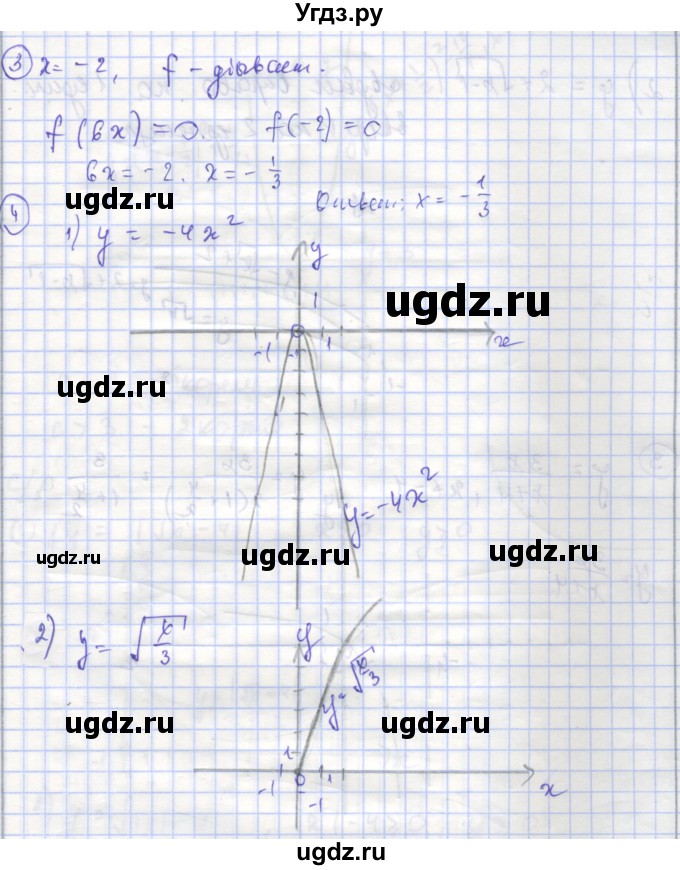 Угдз.ру
③ x = -2,   f -
f(6x) = 0.   f(-2) = 0
6x = -2.  x = -1/3
ugdz.ru
Ответ: x = -1/3
④ 1) y = -4x²
y
1
ugdz.ru
-1 0 1
-1
x
ugdz.ru
y = -4x²
ugdz.ru
ugdz.ru
ugdz.ru
2) y = √(x/3)
y
y = √(x/3)
ugdz.ru
ugdz.ru
1
-1 0 1
-1
x
ugdz.ru